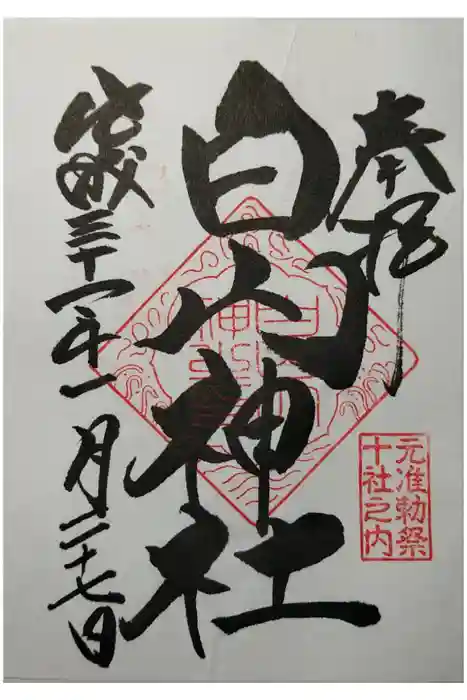 奉拝
元准勅祭
十社之内
白山神社
平成三十一年一月二十七日